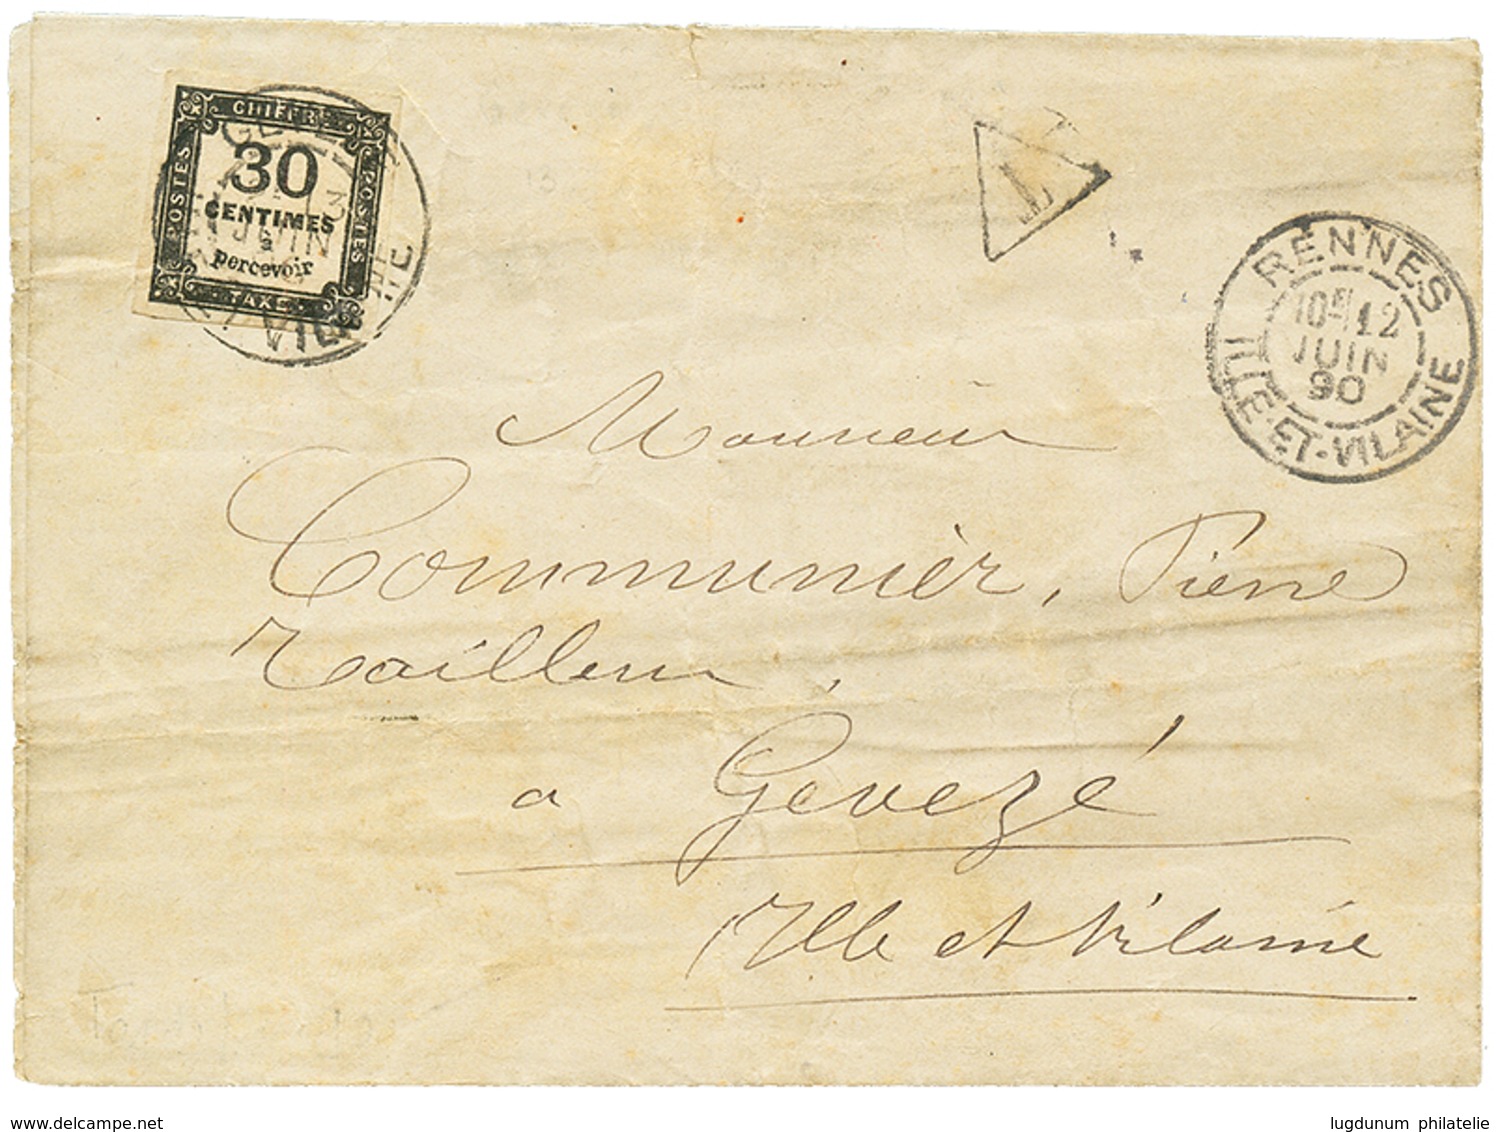 CHIFFRE
POSTES
30
CENTIMES
à
percevoir
POSTES
TAXE
JUIN
T
RENNES
10E 12
JUIN
90
ILLE-ET-VILAINE
Monsieur
Communièr, Pierre
Tailleur,
a Gevezé
Ille et Vilaine
www.delcampe.net
lugdunum philatelie